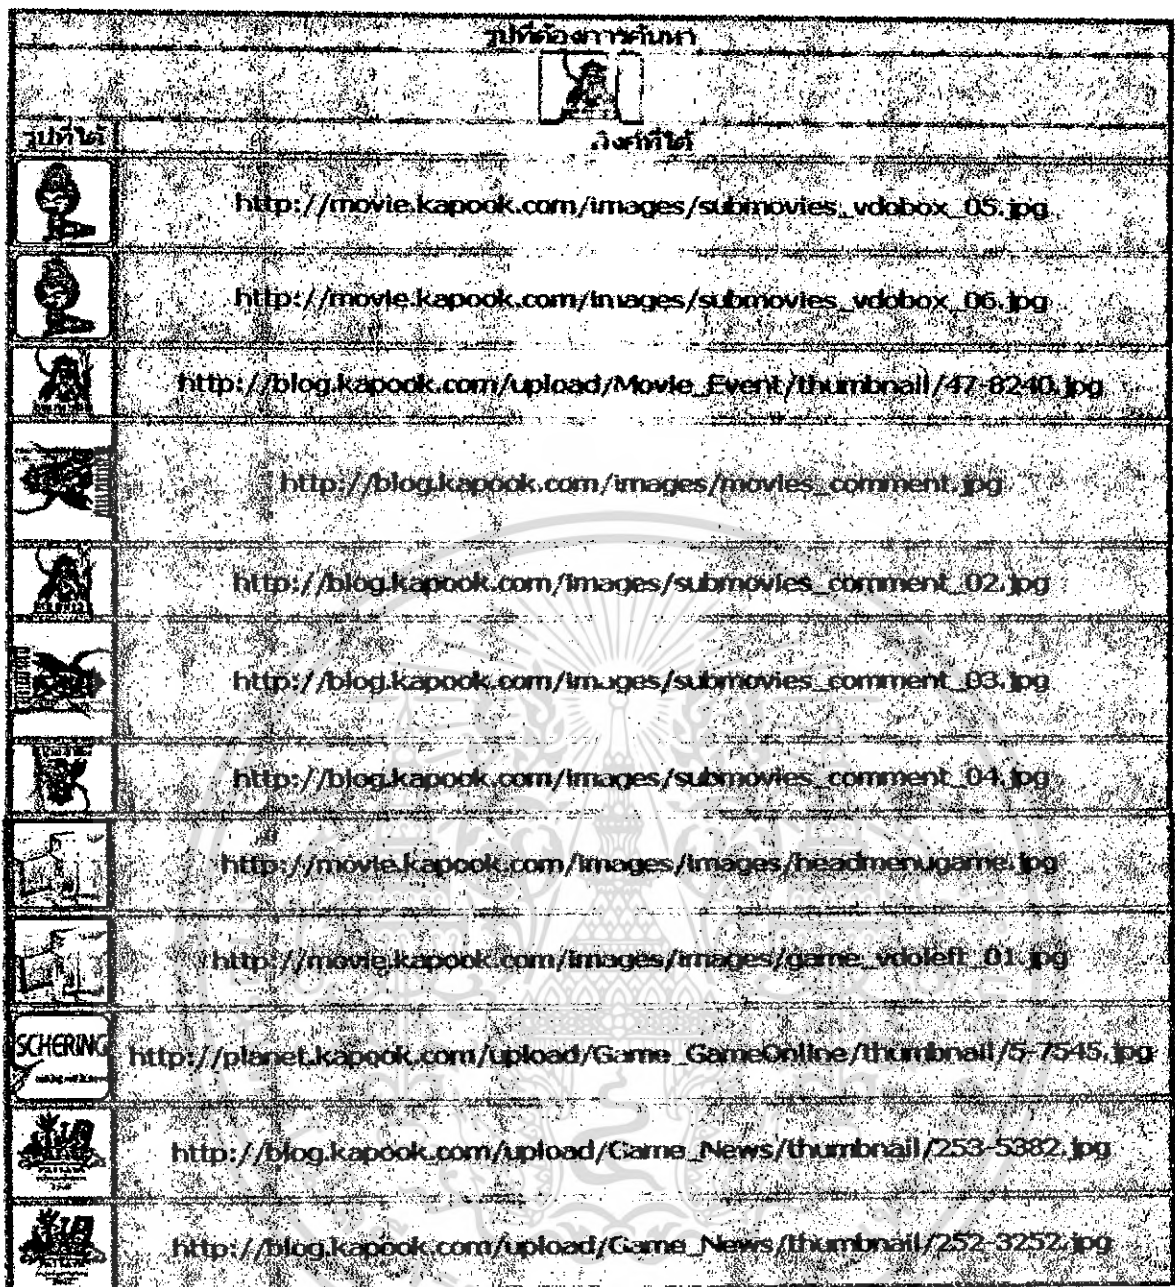 รูปที่ต้องการค้นหา
รูปที่ได้ ลิงค์ที่ได้
http://movie.kapook.com/images/submovies_vdobox_05.jpg
http://movie.kapook.com/images/submovies_vdobox_06.jpg
http://blog.kapook.com/upload/Movie_Event/thumbnail/47-8240.jpg
http://blog.kapook.com/images/movies_comment.jpg
http://blog.kapook.com/images/submovies_comment_02.jpg
http://blog.kapook.com/images/submovies_comment_03.jpg
http://blog.kapook.com/images/submovies_comment_04.jpg
http://movie.kapook.com/images/images/headmenugame.jpg
http://movie.kapook.com/images/images/game_vdoleft_01.jpg
SCHERING http://planet.kapook.com/upload/Game_GameOnline/thumbnail/5-7545.jpg
http://blog.kapook.com/upload/Game_News/thumbnail/253-5382.jpg
http://blog.kapook.com/upload/Game_News/thumbnail/252-3252.jpg